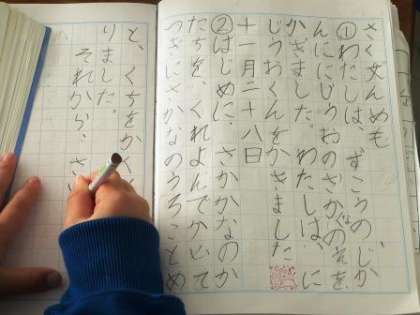 さく文んめも
①わたしは、ずこうのじか
んににじうおのさかなのえを
かきました。わたしは、に
じうおくんをかきました。
十一月二十八日
②はじめに、さかかなのか
たちを、くれよんでかいて
つぎにさかなのうろことめ
と、くちをか
りました。
それから、さ